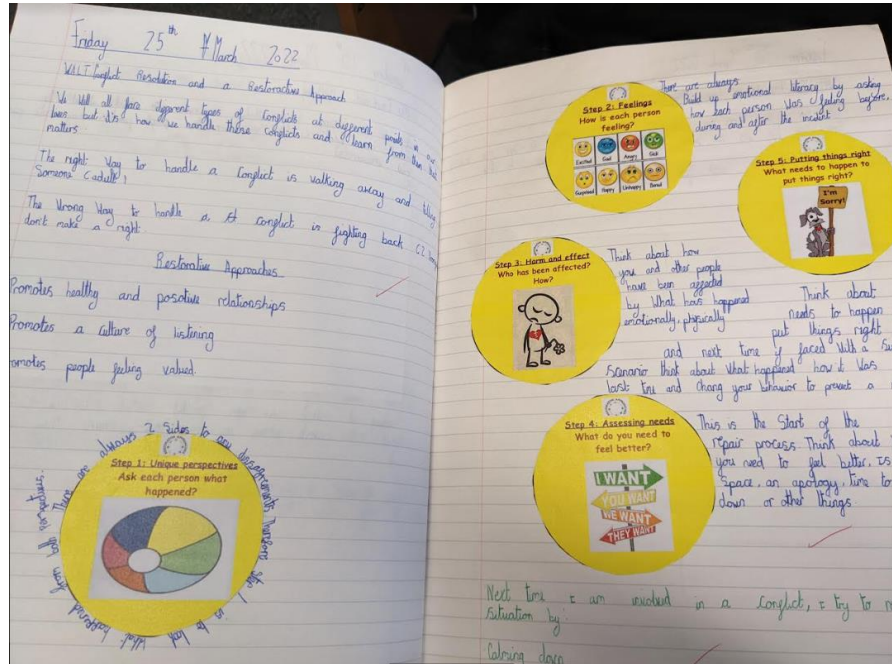 Friday 25th March 2022
WALT Conflict Resolution and a Restorative Approach
We will all face different types of conflicts at different points in our
lives but it's how we handle these conflicts and learn from them that
matters
The right way to handle a conflict is walking away and telling
someone (adult)
The wrong way to handle a conflict is fighting back (2
don't make a right
Restorative Approaches
Promotes healthy and posative relationships
Promotes a culture of listening
omotes people feeling valued.
There are always 2 sides to any disagreements therefore step 1 is to look
what happened from both perspectives.
Step 1: Unique perspectives
Ask each person what
happened?
Step 2: Feelings
How is each person
feeling?
Excited Sad Angry Sick
Surprised Happy Unhappy Bored
There are always
Build up emotional literacy by asking
how each person was feeling before,
during and after the incident
Step 5: Putting things right
What needs to happen to
put things right?
I'm
Sorry!
Step 3: Harm and effect
Who has been affected?
How?
Think about how
you and other people
have been affected
by what has happened
emotionally, physically
Think about
needs to happen
put things right
and next time if faced with a
scenario think about what happened how it was
last time and chang your behavior to prevent a
Step 4: Assessing needs
What do you need to
feel better?
I WANT
YOU WANT
WE WANT
THEY WANT
This is the start of the
repair process. Think about
you need to feel better, is
space, an apology, time to
down or other things.
Next time I am involved in a conflict, I try to
situation by
Calming down